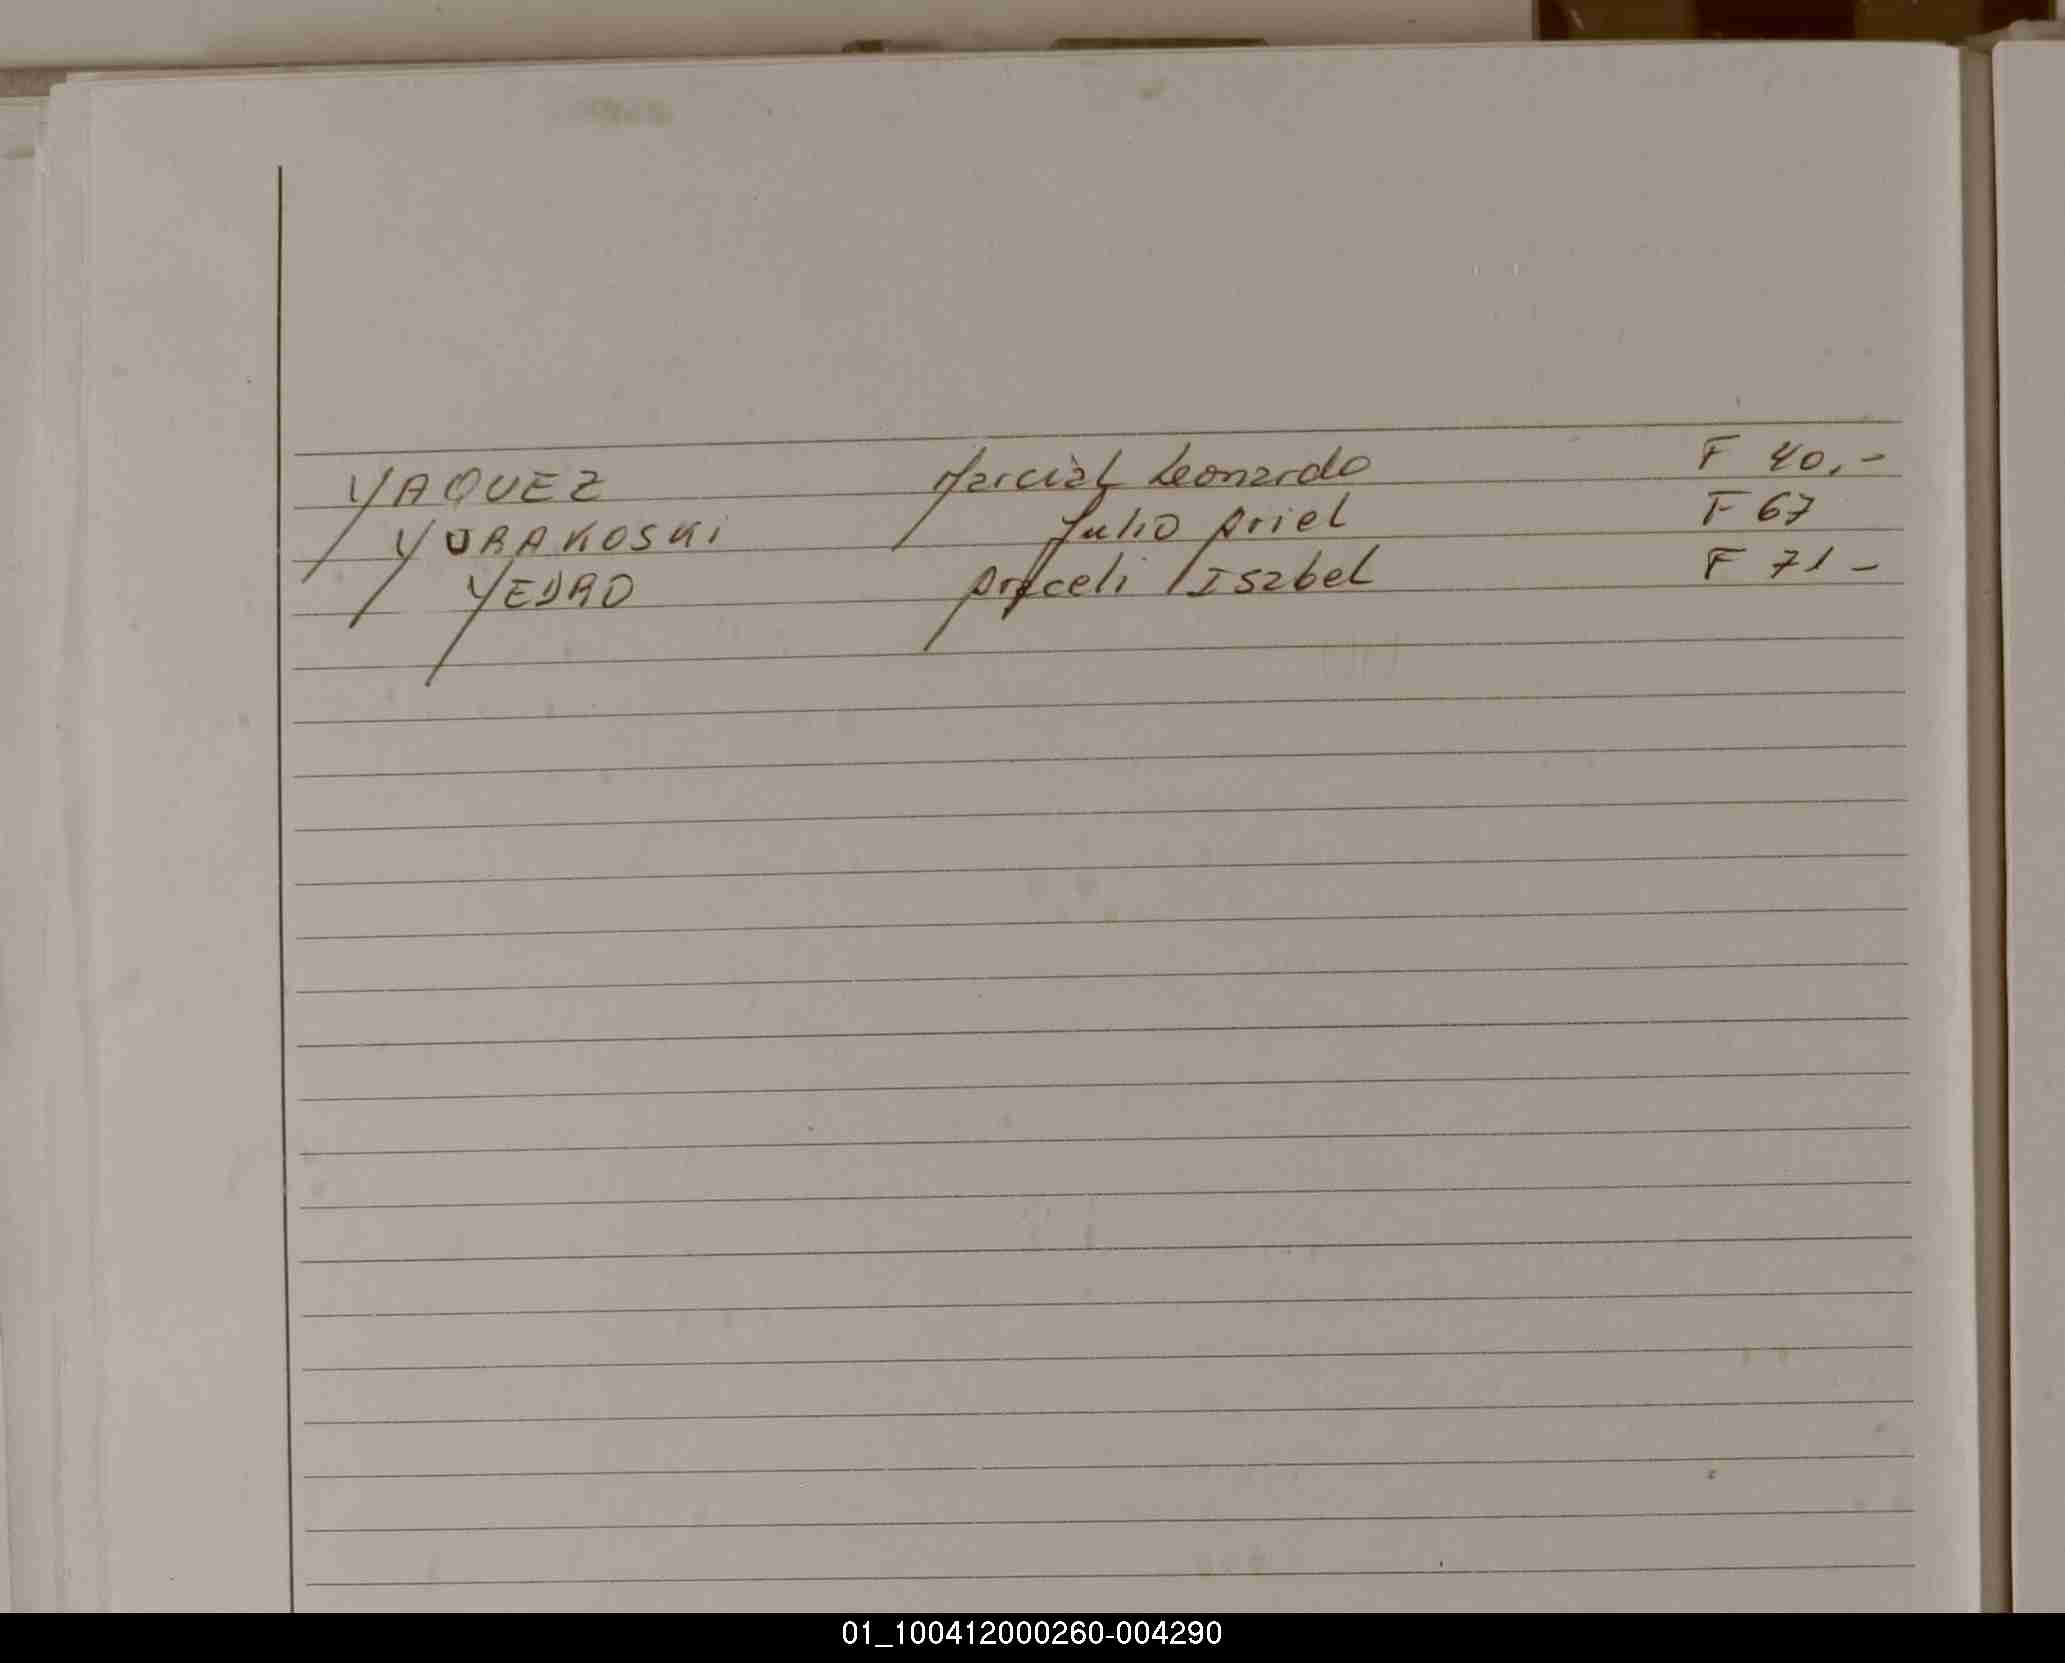 YAQUEZ Marcial Leonardo F 40,-
YURAKOSKI Julio Ariel F 67
YEDRO Araceli Isabel F 71 -
01_100412000260-004290